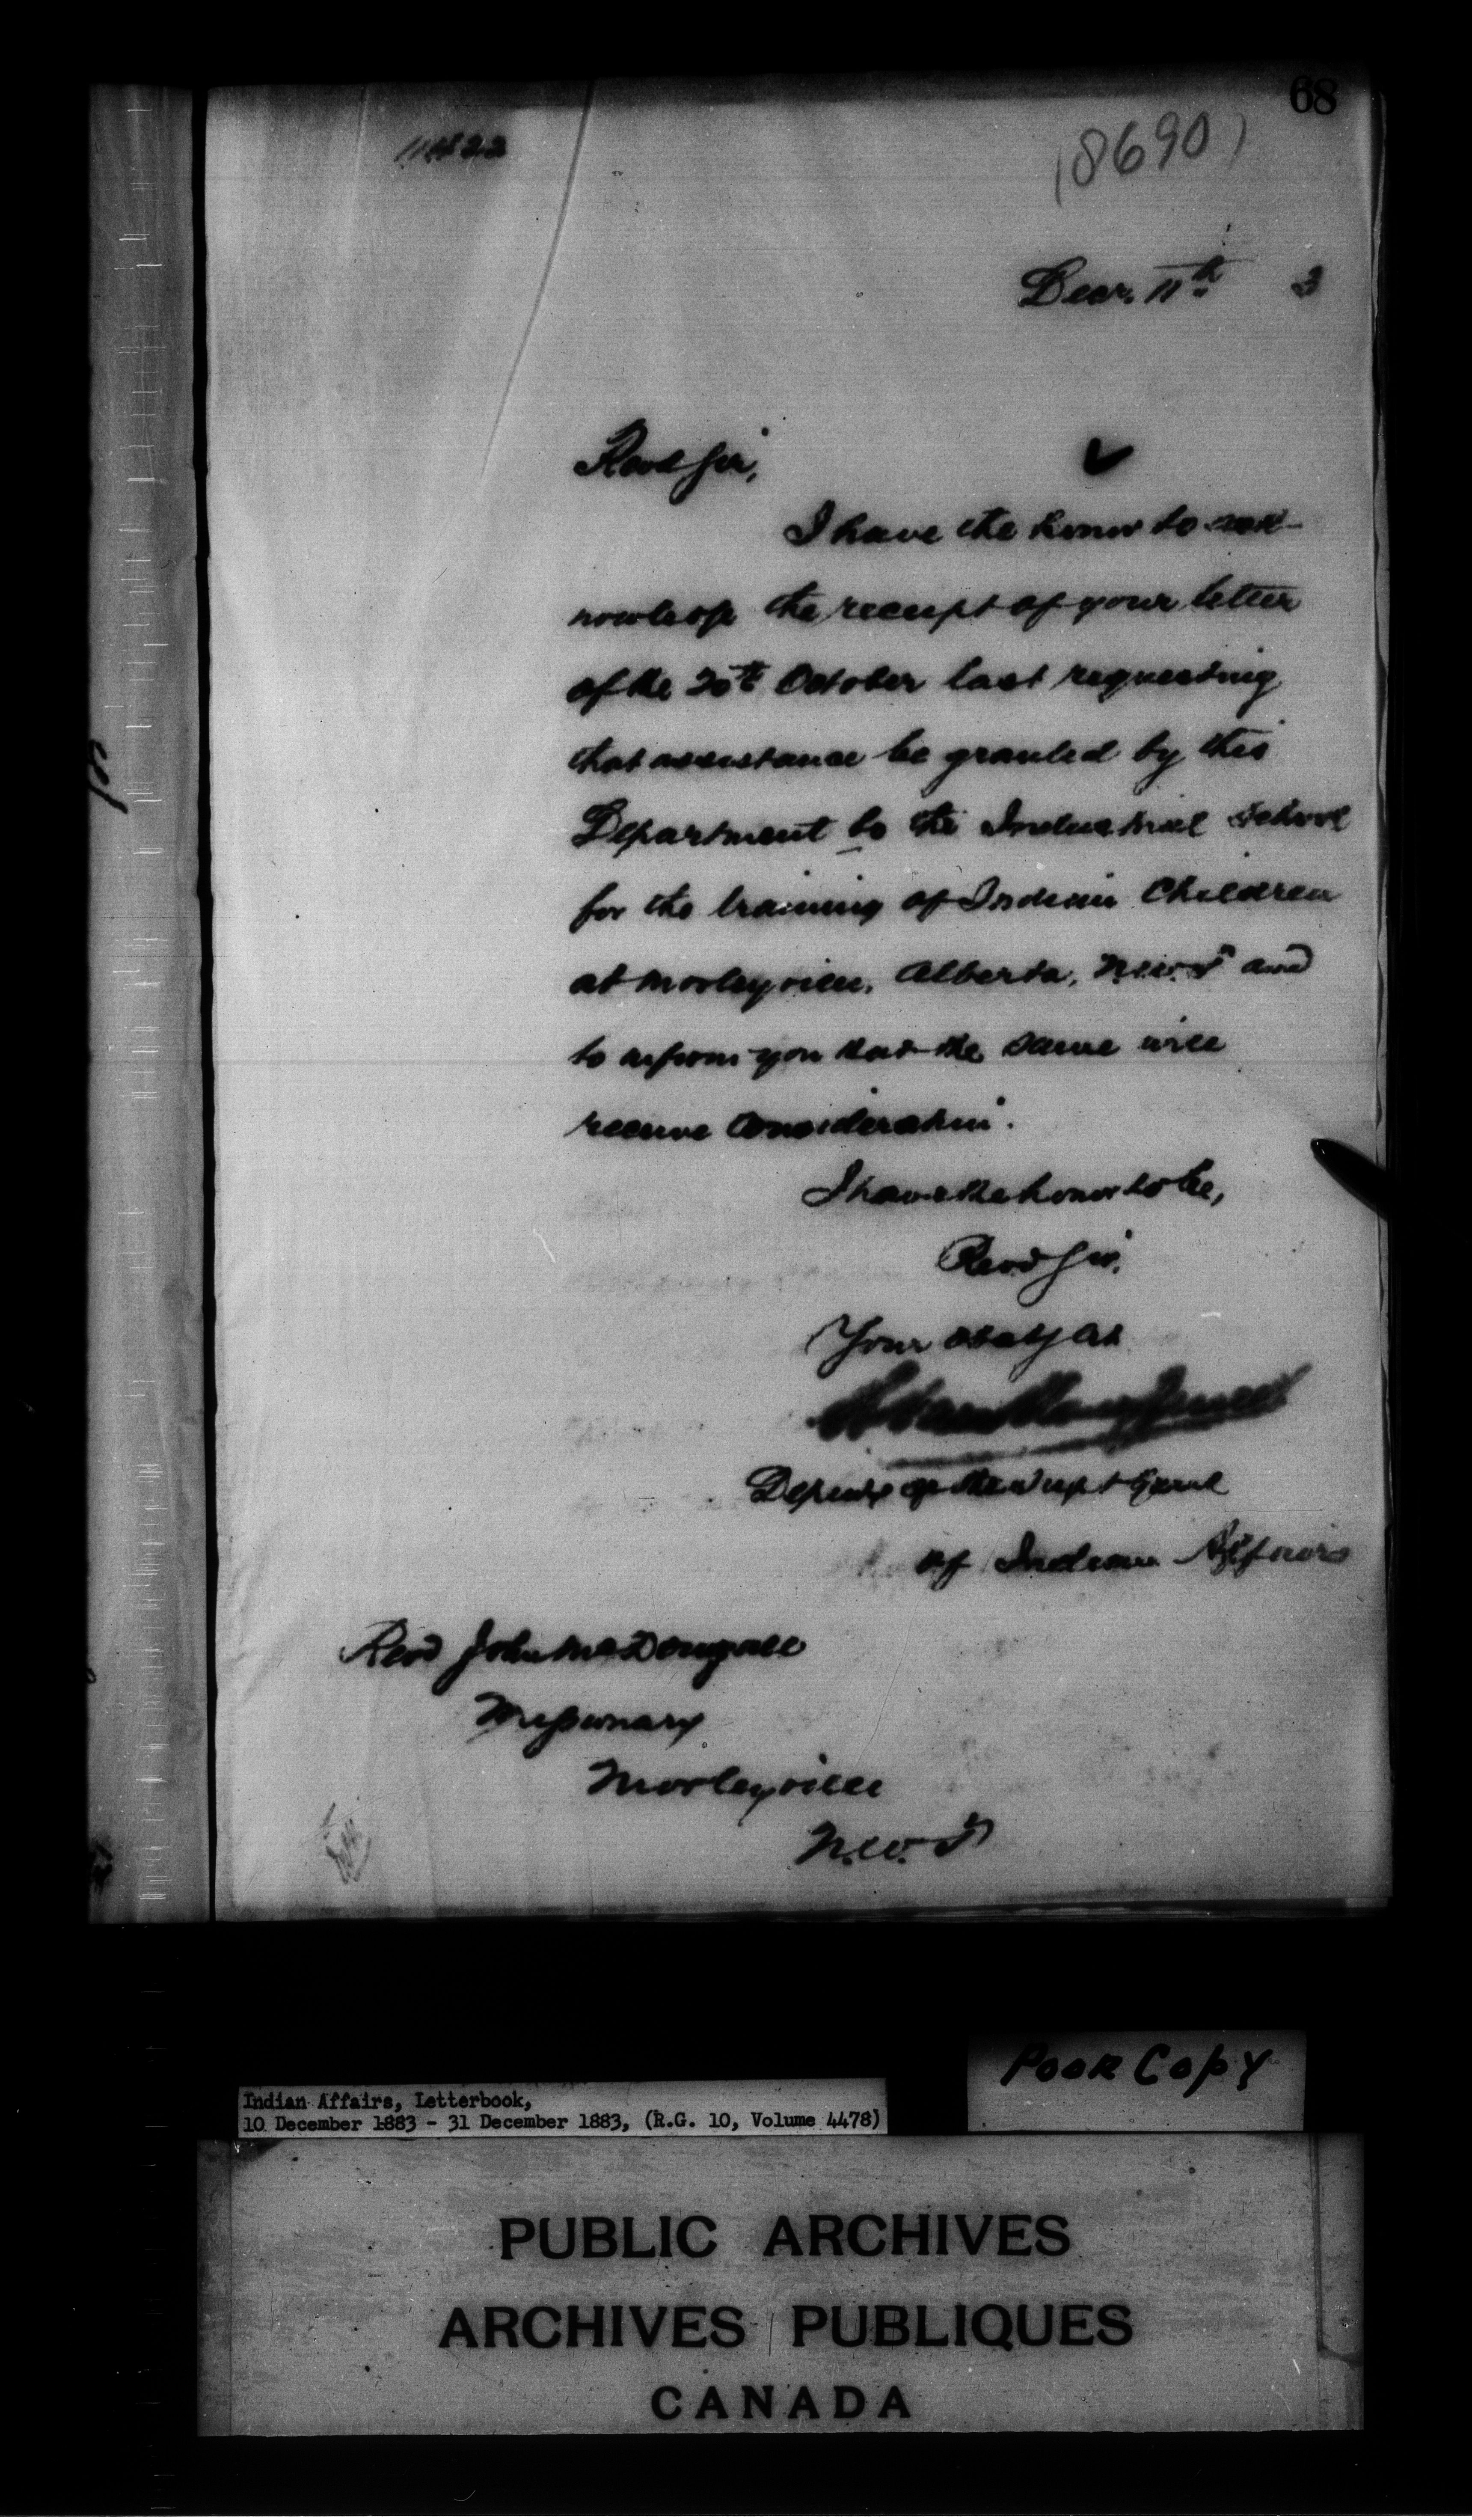 68
(8690)
Decr. 11th 3
Revd Sir,
I have the honor to ack-
nowledge the receipt of your letter
of the 20th October last requesting
that assistance be granted by this
Department to the Industrial School
for the training of Indian Children
at Morleyville, Alberta, N.W.T and
to inform you that the same will
receive consideration.
I have the honor to be,
Revd Sir,
Your
Deputy of the Supt Genl
of Indian Affairs
Revd John McDougall
Missionary
Morleyville
N.W.T
Poor Copy
Indian Affairs, Letterbook,
10 December 1883 - 31 December 1883, (R.G. 10, Volume 4478)
PUBLIC ARCHIVES
ARCHIVES PUBLIQUES
CANADA